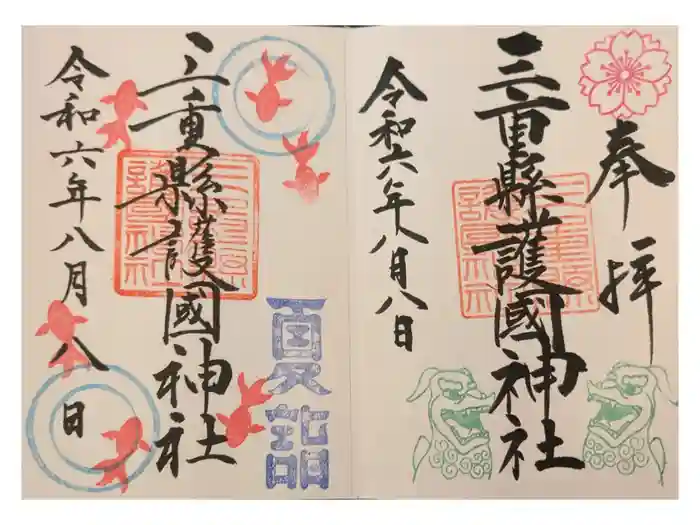 奉拝
三重縣護國神社
令和六年八月八日
夏詣
三重縣護國神社
令和六年八月八日